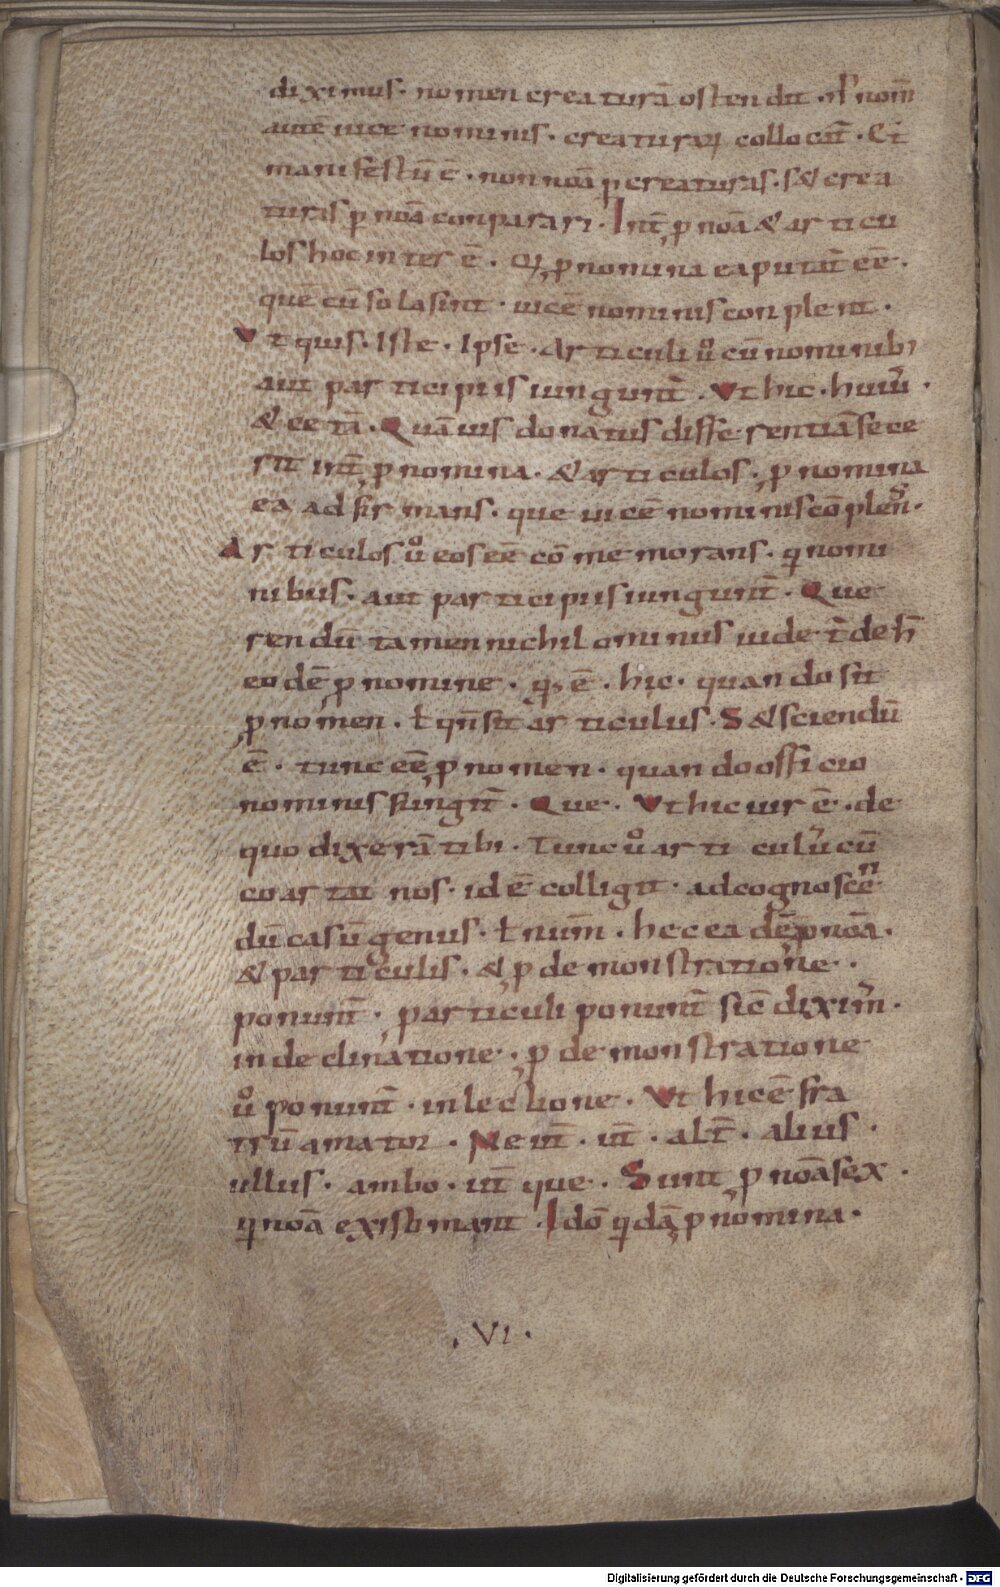 diximus· nomen creaturā ostendit· nomī
autē uice nominis· creaturaꝝ collocat̄· Et
manifestū ē· non noā ꝓ creaturis· s& crea
turis ꝓ noā conparari· Int̄ ꝓ noā & articu
los hoc inter ē· Qđ ꝓ nomina ea putat̄ eē·
quē cū sola sint· uicē nominis conplent·
Vt quis· Iste· Ipse· Articuli ů cū nominib;
aut participiis iungunt̄· Vt hic· huiu᷒·
& cetā· Quāuis donatus differentiā fece
rit int̄ ꝓ nomina· & articulos· ꝓ nomina
ea adfirmans· que uicē nominis cōplen̄·
Articulos ů eos eē cōmemorans· qi nomi
nibus· aut participiis iungunt̄· Que
rendū tamen nichilominus uidet̄ de h̄
eodē ꝓ nomine· qđ ē· hic· quando sit
ꝓ nomen· ł qn̄ sit articulus· S& sciendū
ē· tunc eē ꝓ nomen· quando officio
nominis fungit̄· Que· Vt hic uir ē· de
quo dixerā tibi· Tunc ů articulu᷒ cū
coartat nos· id ē colligit· ad cognoscen̄
dū casū genus· ł num̄· hec eadē ꝓ noā·
& particulis· & ꝓ demonstratione·
ponunt̄· ꝑ articuli ponunt̄ sic̄ dixim᷒·
in declinatione· ꝓ demonstratione
ů ponunt̄· in lectione· Vt hic ē fra
trū amator· Neut̄· ut̄· alt̄· alius·
ullus· ambo· ut̄que· Sunt ꝓ noā sex·
qi noā existimant· Idō qidā ꝓ nomina·
· VI ·
Digitalisierung gefördert durch die Deutsche Forschungsgemeinschaft - DFG